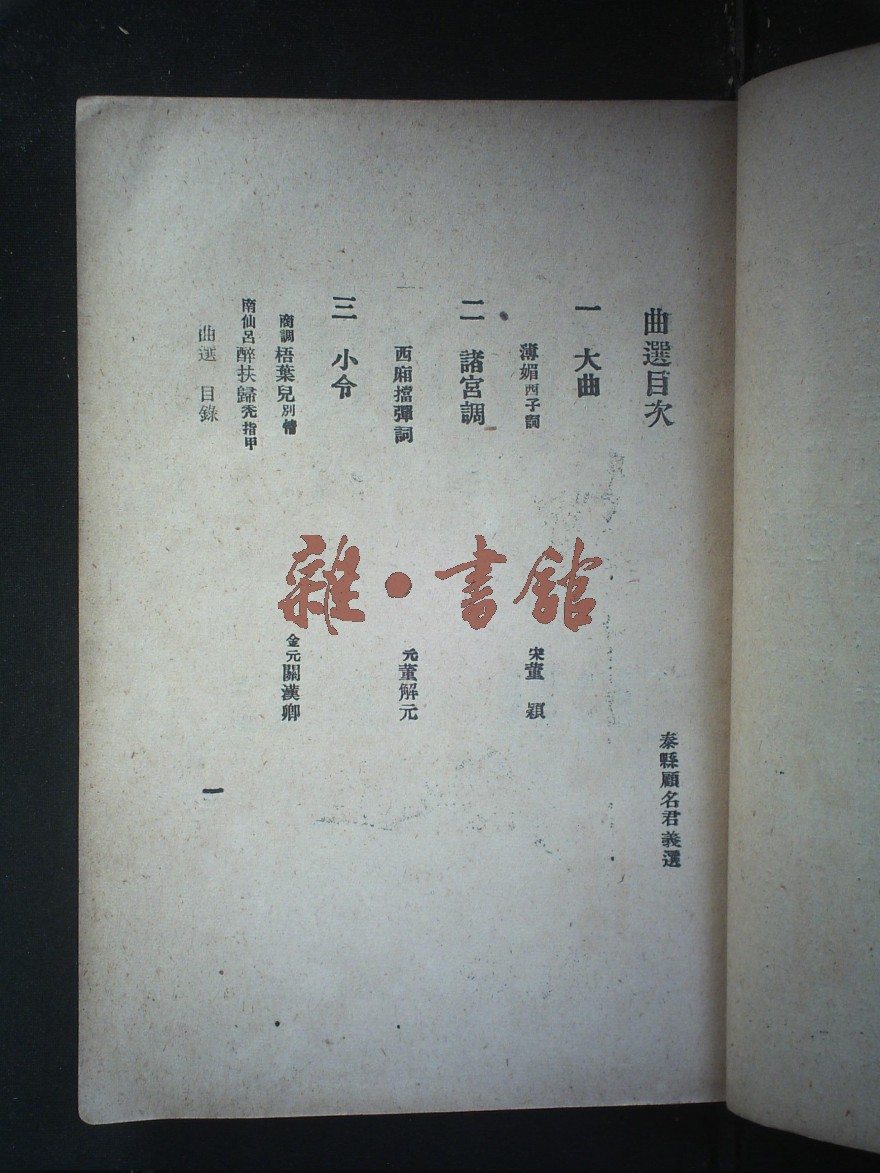 曲選目次
泰縣顧名君義選
一 大曲
薄媚西子詞 宋董 穎
二 諸宮調
西廂搊彈詞 元董解元
三 小令
商調梧葉兒別情 金元關漢卿
南仙呂醉扶歸禿指甲
曲選 目錄 一
雜·書館